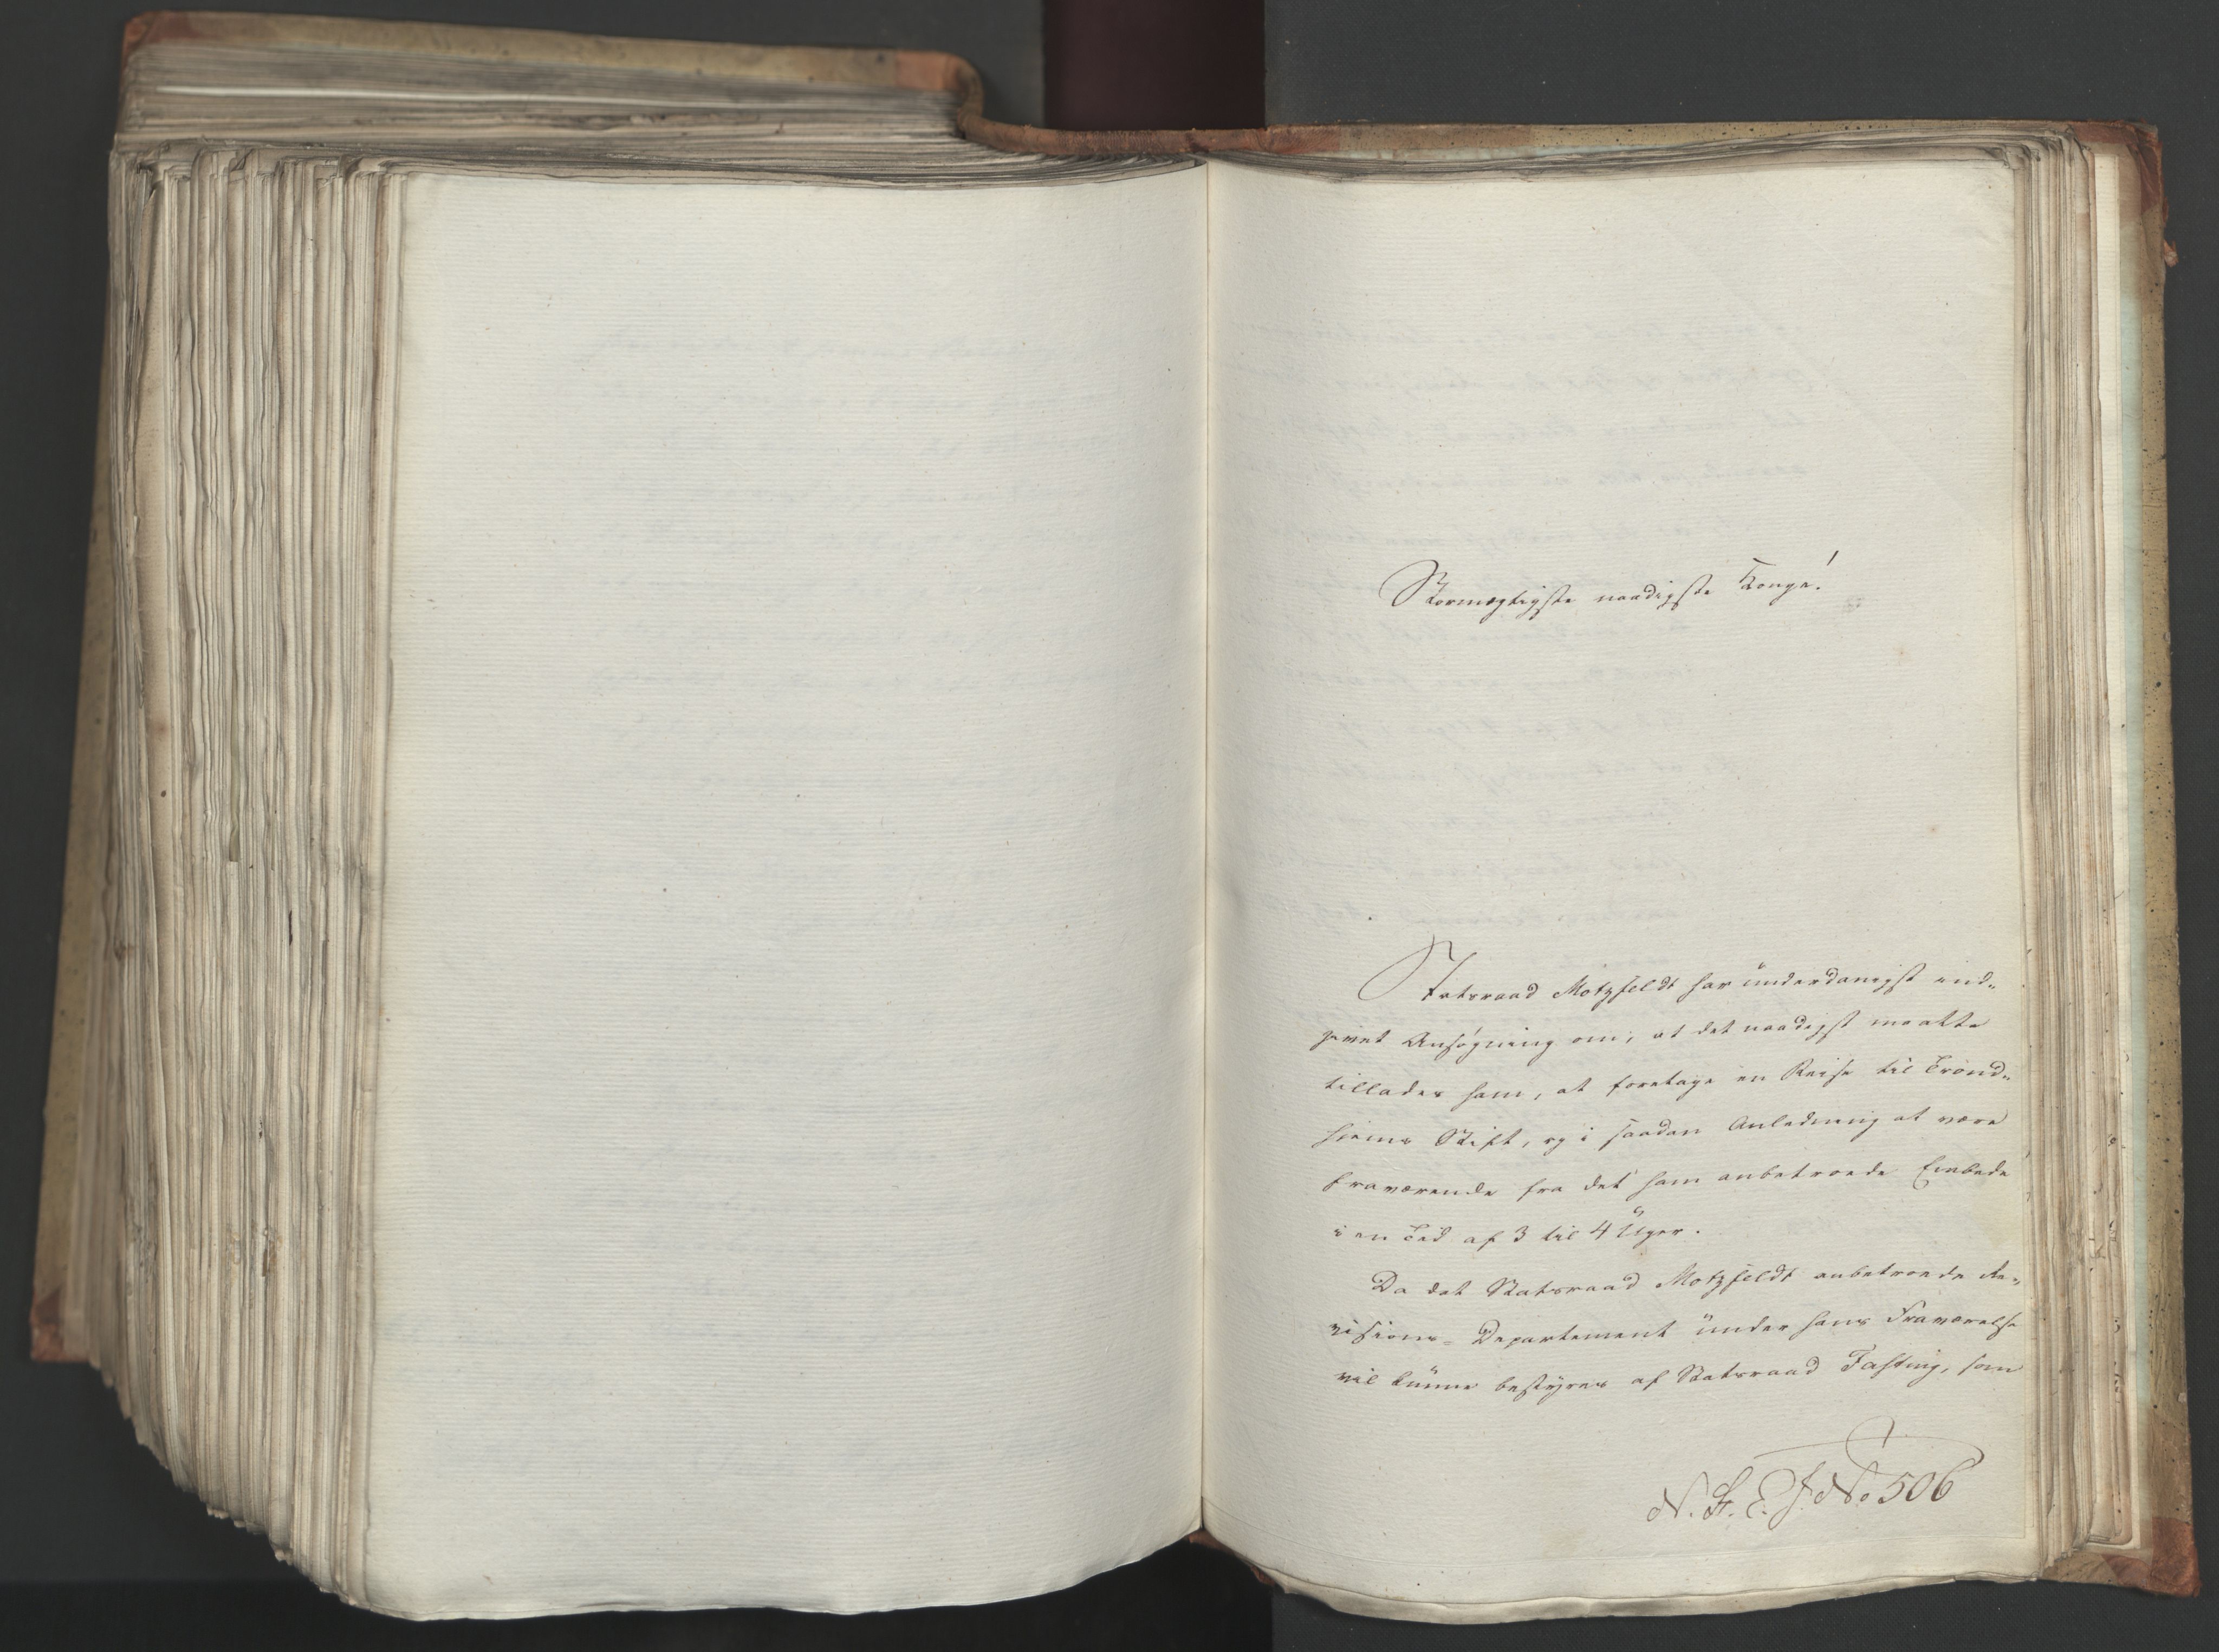 Stormægtigste naadigste Konge!
Statsraad Motzfeldt har underdanigst ind-
givet Ansøgning om, at det naadigst maatte
tillades ham, at foretage en Reise til Trond-
hjems Stift, og i saadan Anledning at være
fraværende fra det ham anbetroede Embede
i en Tid af 3 til 4 Uger.
Da det Statsraad Motzfeldt anbetroede Re-
visions-Departement under hans Fraværelse
vil kunne bestyres af Statsraad Fasting, som
N. St. E. J. No 506